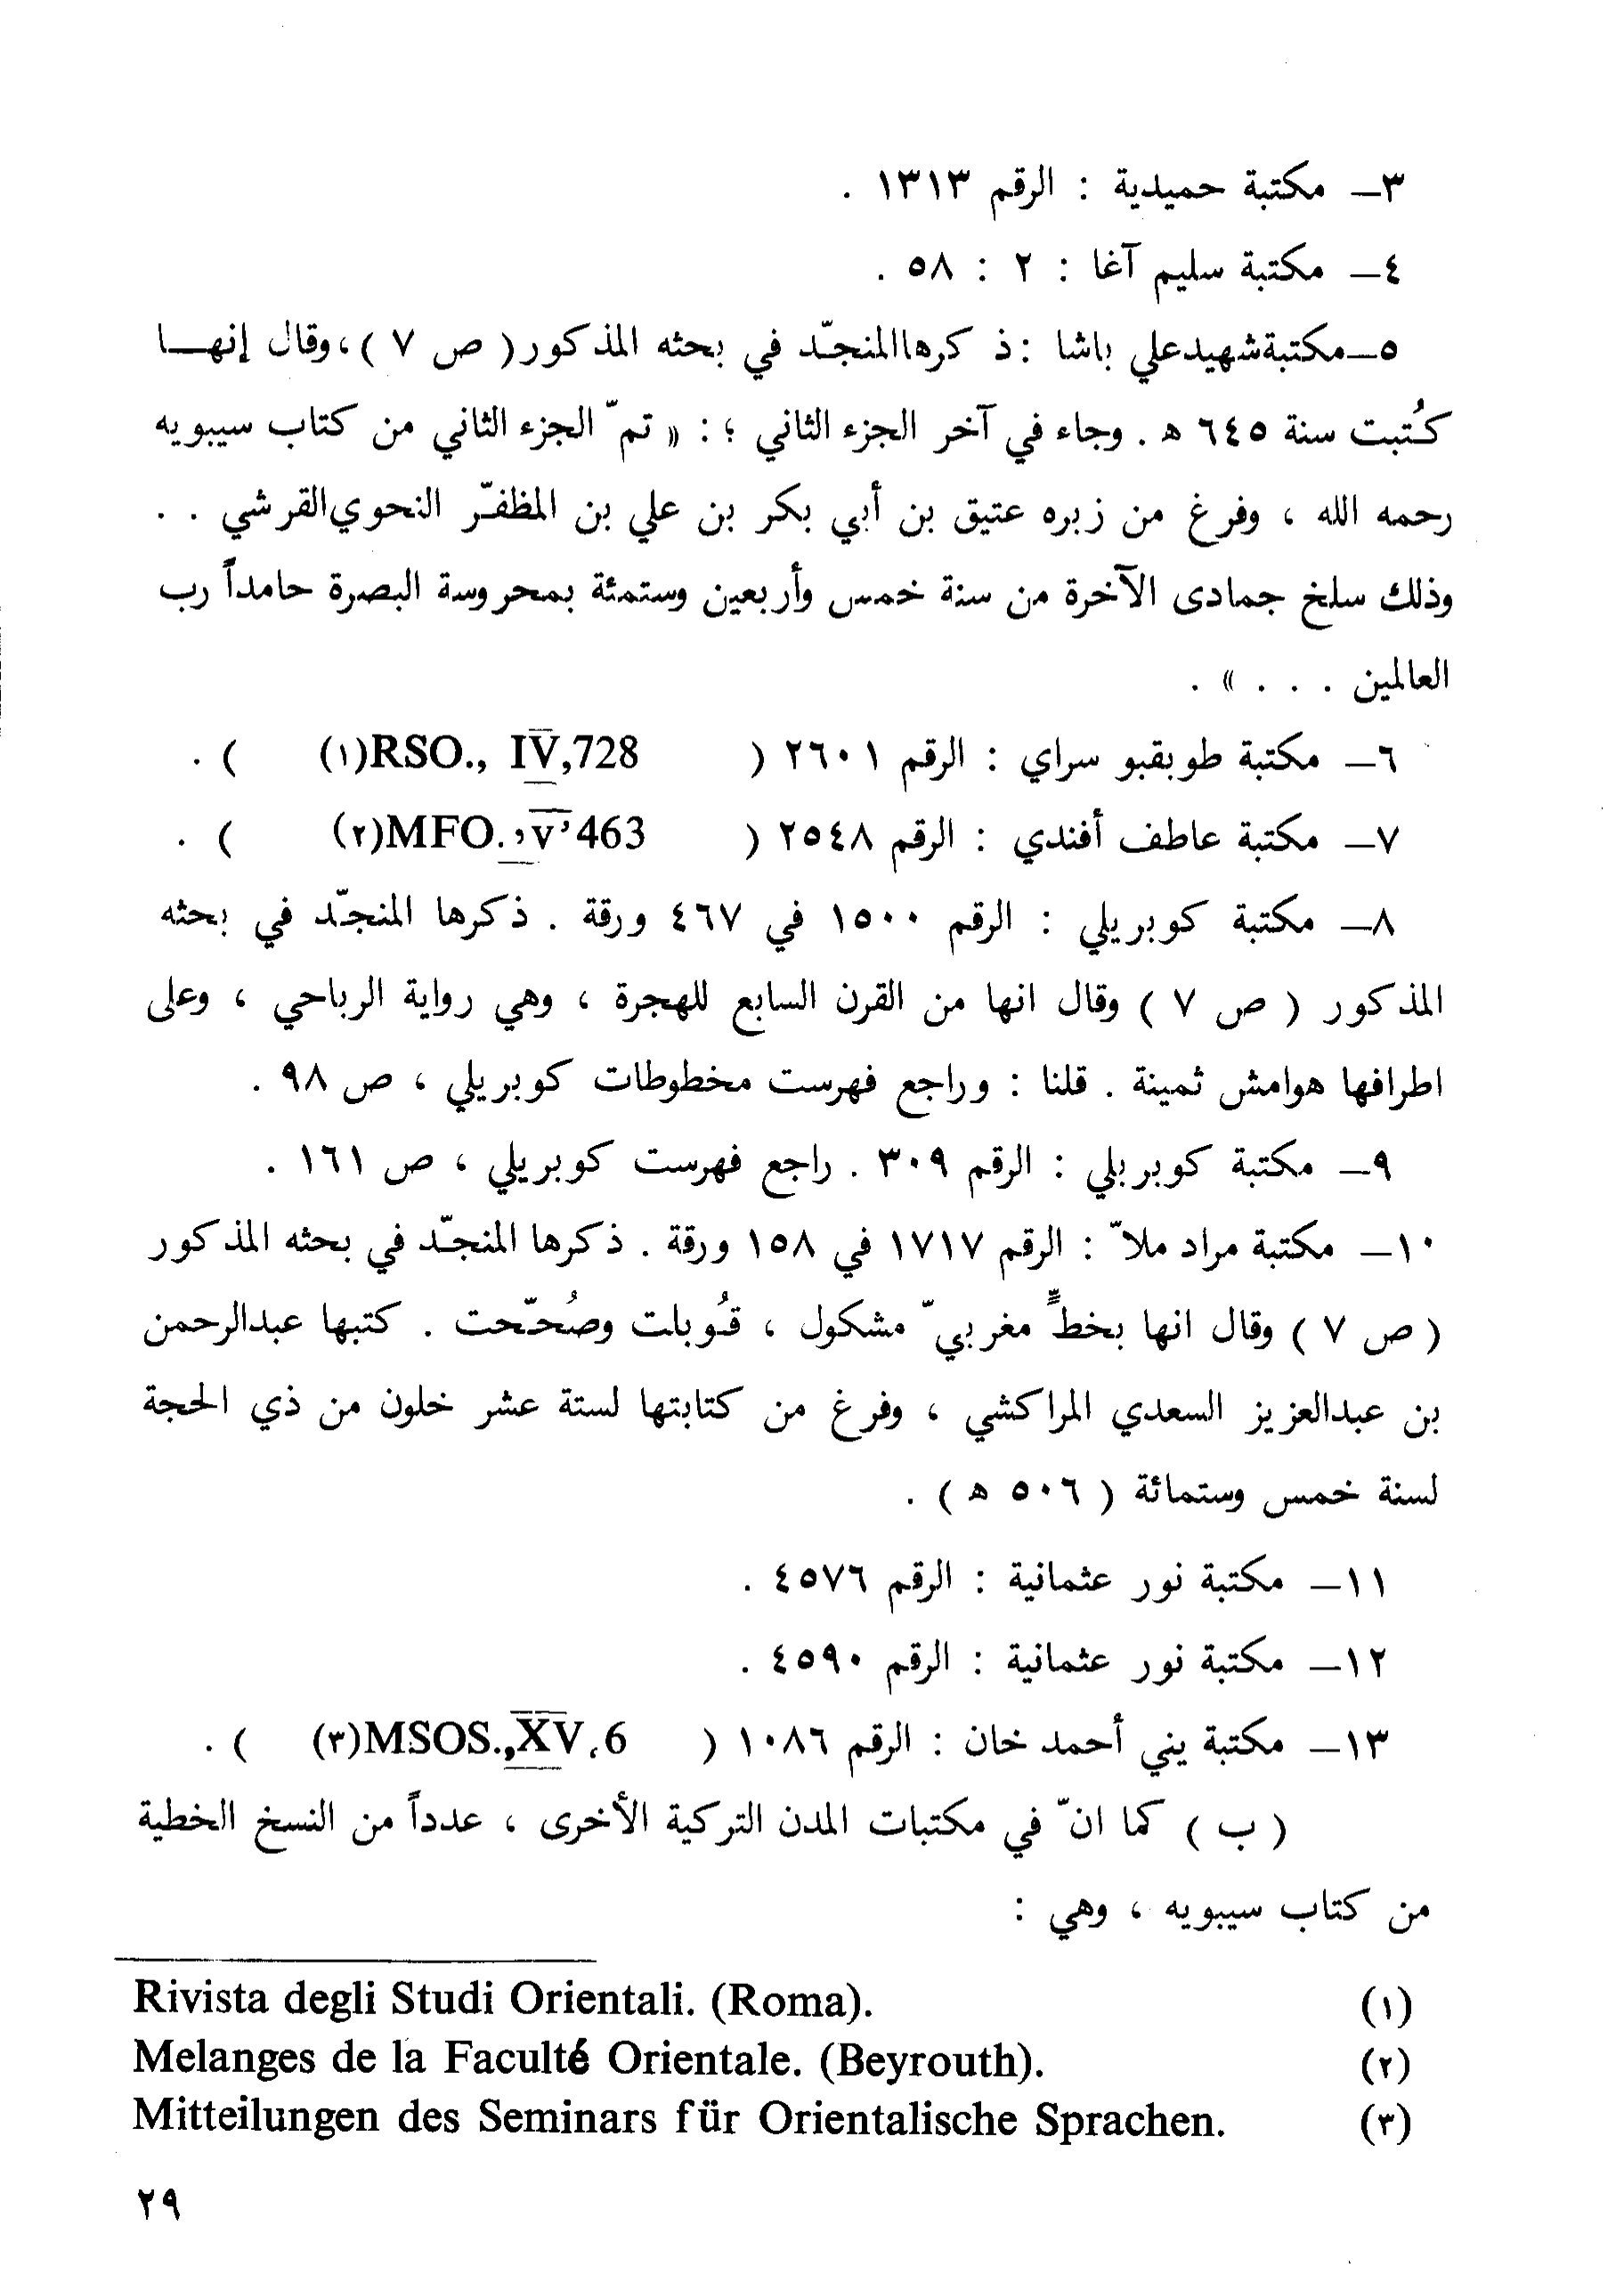 ٣ـ مكتبة حميدية : الرقم ١٣١٣ .
٤ـ مكتبة سليم آغا : ٢ : ٥٨ .
٥ـ مكتبة شهيد علي باشا : ذكرها المنجّد في بحثه المذكور ( ص ٧ ) ، وقال إنهـــا
كُتبت سنة ٦٤٥ ه . وجاء في آخر الجزء الثاني ؛ : « تمّ الجزء الثاني من كتاب سيبويه
رحمه الله ، وفرغ من زبره عتيق بن أبي بكر بن علي بن المظفّر النحوي القرشي . .
وذلك سلخ جمادى الآخرة من سنة خمس وأربعين وستمئة بمحروسة البصرة حامداً رب
العالمين . . . » .
٦ـ مكتبة طوبقبو سراي : الرقم ٢٦٠١ ( RSO., IV,728(١) ) .
٧ـ مكتبة عاطف أفندي : الرقم ٢٥٤٨ ( MFO., V, 463(٢) ) .
٨ـ مكتبة كوبريلي : الرقم ١٥٠٠ في ٤٦٧ ورقة . ذكرها المنجّد في بحثه
المذكور ( ص ٧ ) وقال انها من القرن السابع للهجرة ، وهي رواية الرباحي ، وعلى
اطرافها هوامش ثمينة . قلنا : وراجع فهرست مخطوطات كوبريلي ، ص ٩٨ .
٩ـ مكتبة كوبريلي : الرقم ٣٠٩ . راجع فهرست كوبريلي ، ص ١٦١ .
١٠ـ مكتبة مراد ملاّ : الرقم ١٧١٧ في ١٥٨ ورقة . ذكرها المنجّد في بحثه المذكور
( ص ٧ ) وقال انها بخطٍّ مغربيّ مشكول ، قُوبلت وصُحّحت . كتبها عبدالرحمن
بن عبدالعزيز السعدي المراكشي ، وفرغ من كتابتها لستة عشر خلون من ذي الحجة
لسنة خمس وستمائة ( ٥٠٦ ه ) .
١١ـ مكتبة نور عثمانية : الرقم ٤٥٧٦ .
١٢ـ مكتبة نور عثمانية : الرقم ٤٥٩٠ .
١٣ـ مكتبة يني أحمد خان : الرقم ١٠٨٦ ( MSOS., XV,6(٣) ) .
( ب ) كما انّ في مكتبات المدن التركية الأخرى ، عدداً من النسخ الخطية
من كتاب سيبويه ، وهي :
(١) Rivista degli Studi Orientali. (Roma).
(٢) Melanges de la Faculté Orientale. (Beyrouth).
(٣) Mitteilungen des Seminars für Orientalische Sprachen.
٢٩